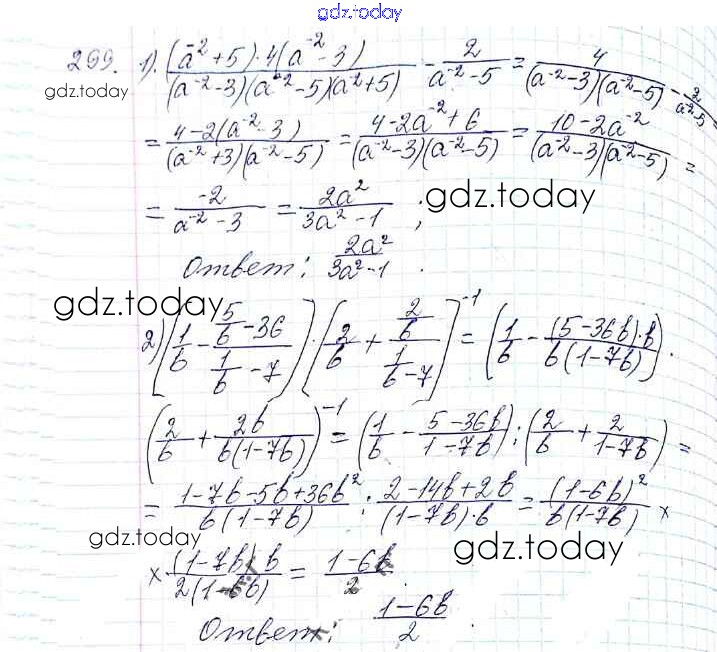 gdz.today
299. 1). ((a⁻²+5)·4(a⁻²-3))/((a⁻²-3)(a⁻²-5)(a²+5)) - 2/(a⁻²-5) = 4/((a⁻²-3)(a⁻²-5)) - 2/(a⁻²-5) =
gdz.today
= (4-2(a⁻²-3))/((a⁻²+3)(a⁻²-5)) = (4-2a⁻²+6)/((a⁻²-3)(a⁻²-5)) = (10-2a⁻²)/((a⁻²-3)(a⁻²-5)) =
= -2/(a⁻²-3) = 2a²/(3a²-1) ;
gdz.today
Ответ: 2a²/(3a²-1).
gdz.today
2) (1/b - (5/b-36)/(1/b-7)) · (2/b + (2/b)/(1/b-7))⁻¹ = (1/b - ((5-36b)·b)/(b(1-7b))).
(2/b + 2b/(b(1-7b)))⁻¹ = (1/b - (5-36b)/(1-7b)) : (2/b + 2/(1-7b)) =
= (1-7b-5b+36b²)/(b(1-7b)) : (2-14b+2b)/((1-7b)·b) = (1-6b)²/(b(1-7b)) ×
gdz.today
gdz.today
× ((1-7b) b)/(2(1-6b)) = (1-6b)/2 .
Ответ: (1-6b)/2 .